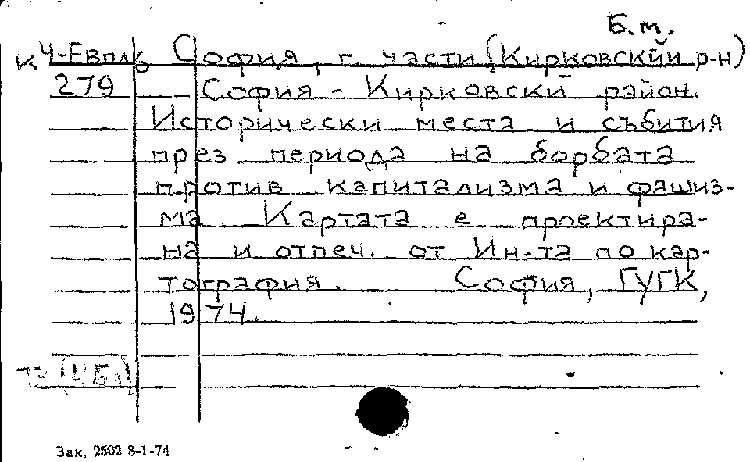 Б.м.
К 4-Евпл6 София, г. части (Кирковский р-н)
279 София - Кирковски район.
Исторически места и събития
през периода на борбата
против капитализма и фашиз-
ма Картата е проектира-
на и отпеч. от Ин-та по кар-
тография. София, ГУГК,
1974.
Зак. 2502 8-1-74